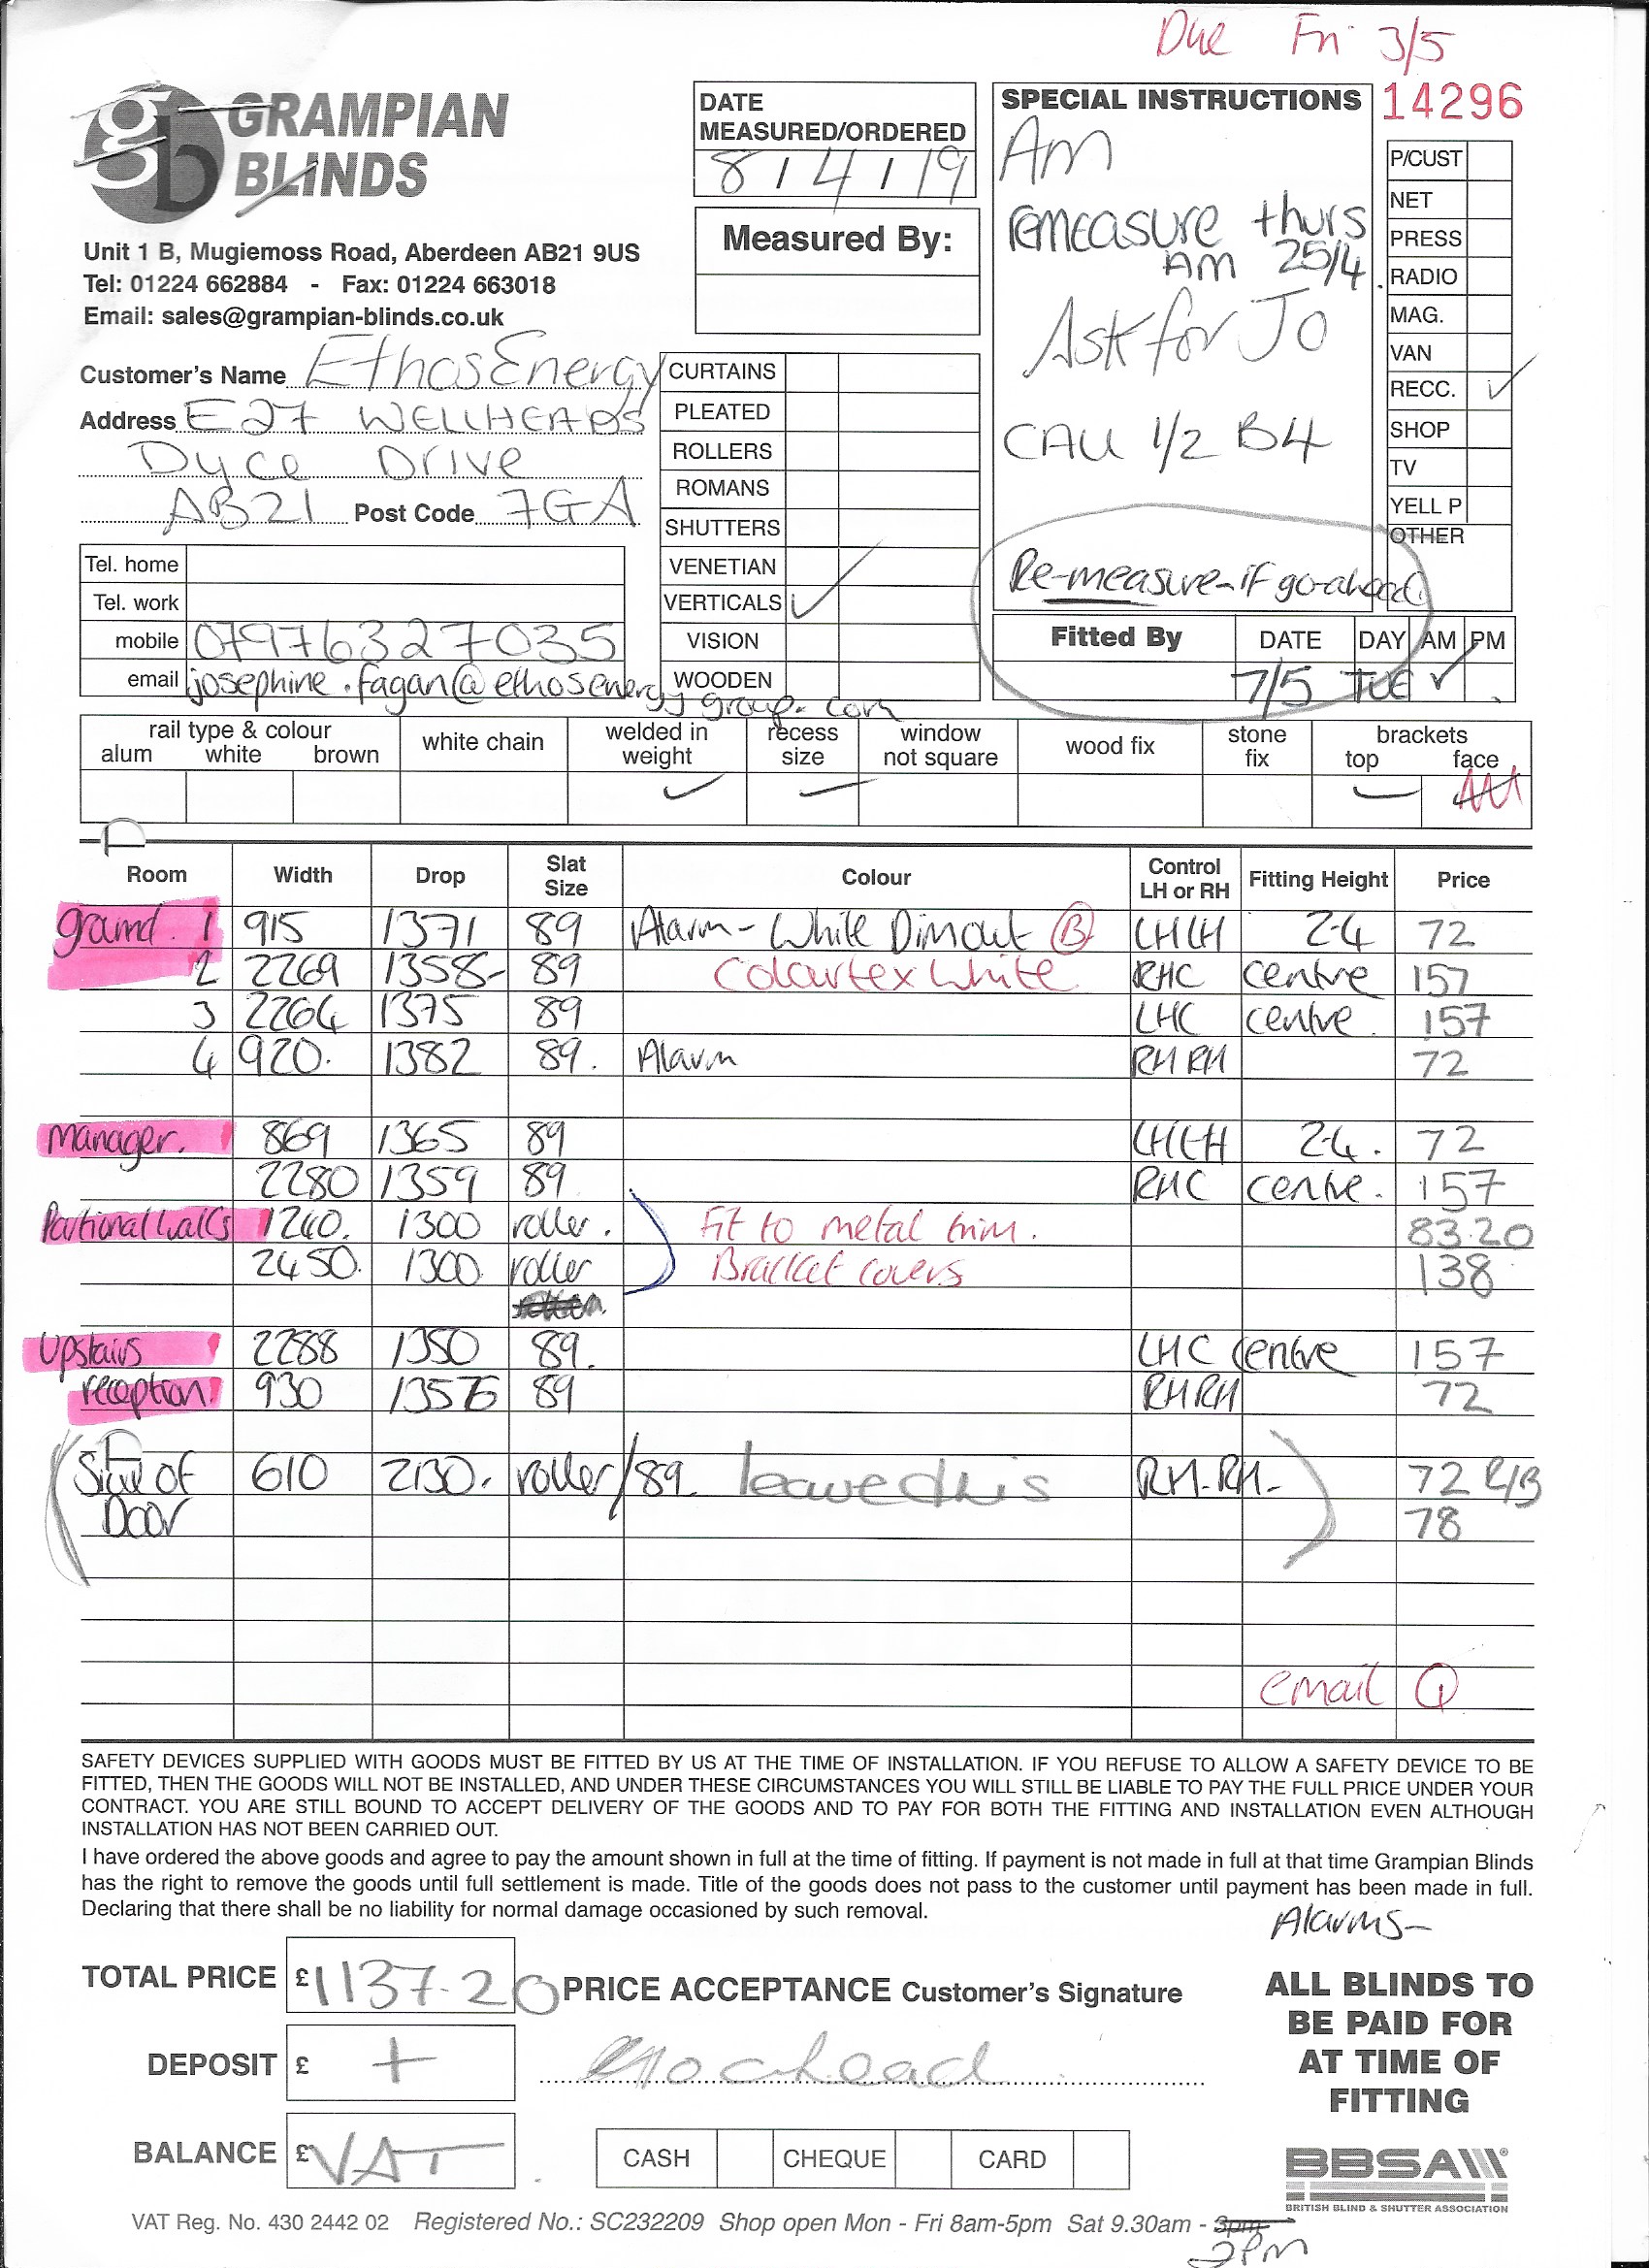 Due Fri 3/5
14296
gb GRAMPIAN
BLINDS
Unit 1 B, Mugiemoss Road, Aberdeen AB21 9US
Tel: 01224 662884 - Fax: 01224 663018
Email: sales@grampian-blinds.co.uk
DATE
MEASURED/ORDERED
8/4/19
Measured By:
SPECIAL INSTRUCTIONS
Am
remeasure thurs
AM 25/4
Ask for Jo
CALL 1/2 B4
Re-measure-if go-ahead
P/CUST
NET
PRESS
RADIO
MAG.
VAN
RECC. ✓
SHOP
TV
YELL P
OTHER
Customer's Name EthosEnergy
Address E27 WELLHEADS
Dyce Drive
AB21 Post Code 7GA
Tel. home
Tel. work
mobile 07976327035
email josephine.fagan@ethosenergygroup.com
CURTAINS
PLEATED
ROLLERS
ROMANS
SHUTTERS
VENETIAN
VERTICALS ✓
VISION
WOODEN
Fitted By DATE DAY AM PM
7/5 TUE ✓
rail type & colour white chain welded in weight recess size window not square wood fix stone fix brackets
alum white brown top face
Room Width Drop Slat Size Colour Control LH or RH Fitting Height Price
ground 1 915 1371 89 Alarm - White Dimout B LHLH 2.4 72
2 2269 1358- 89 Colourtex White RHC centre 157
3 2264 1375 89 LHC centre 157
4 920. 1382 89. Alarm RH RH 72
Manager. 869 1365 89 LHLH 2.4. 72
2280 1359 89 RHC centre. 157
Partional walls 1240. 1300 roller. Fit to metal trim. 83.20
2450. 1300. roller Bracket covers 138
Upstairs 2288 1350 89. LHC centre 157
reception 930 1356 89 RHRH 72
Side of 610 2130. roller/89. leave this RH-RH- 72 R/B
Door 78
email Q
SAFETY DEVICES SUPPLIED WITH GOODS MUST BE FITTED BY US AT THE TIME OF INSTALLATION. IF YOU REFUSE TO ALLOW A SAFETY DEVICE TO BE
FITTED, THEN THE GOODS WILL NOT BE INSTALLED, AND UNDER THESE CIRCUMSTANCES YOU WILL STILL BE LIABLE TO PAY THE FULL PRICE UNDER YOUR
CONTRACT. YOU ARE STILL BOUND TO ACCEPT DELIVERY OF THE GOODS AND TO PAY FOR BOTH THE FITTING AND INSTALLATION EVEN ALTHOUGH
INSTALLATION HAS NOT BEEN CARRIED OUT.
I have ordered the above goods and agree to pay the amount shown in full at the time of fitting. If payment is not made in full at that time Grampian Blinds
has the right to remove the goods until full settlement is made. Title of the goods does not pass to the customer until payment has been made in full.
Declaring that there shall be no liability for normal damage occasioned by such removal.
Alarms-
TOTAL PRICE £1137.20 PRICE ACCEPTANCE Customer's Signature
DEPOSIT £ + Goahead
BALANCE £ VAT
CASH CHEQUE CARD
ALL BLINDS TO
BE PAID FOR
AT TIME OF
FITTING
BBSA
BRITISH BLIND & SHUTTER ASSOCIATION
VAT Reg. No. 430 2442 02 Registered No.: SC232209 Shop open Mon - Fri 8am-5pm Sat 9.30am - 3pm
2pm